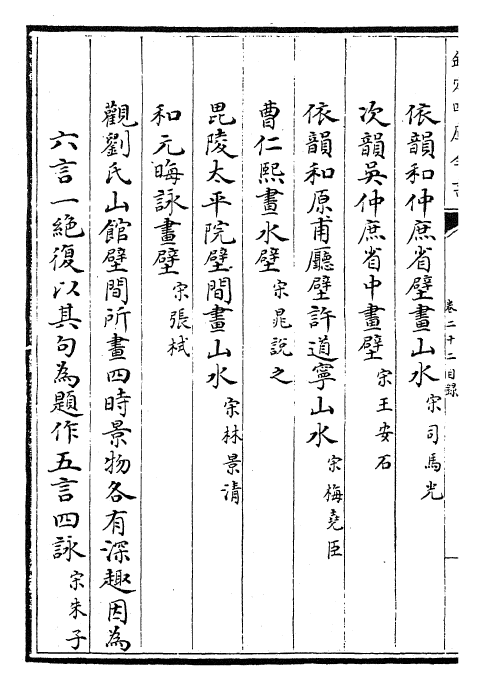 欽定四庫全書
卷二十二目錄
依韻和仲庶省壁畫山水 宋司馬光
次韻吳仲庶省中畫壁 宋王安石
依韻和原甫廳壁許道寧山水 宋梅堯臣
曹仁熙畫水壁 宋晁說之
毘陵太平院壁間畫山水 宋林景清
和元晦詠畫壁 宋張栻
觀劉氏山館壁間所畫四時景物各有深趣因為
六言一絕復以其句為題作五言四詠 宋朱子